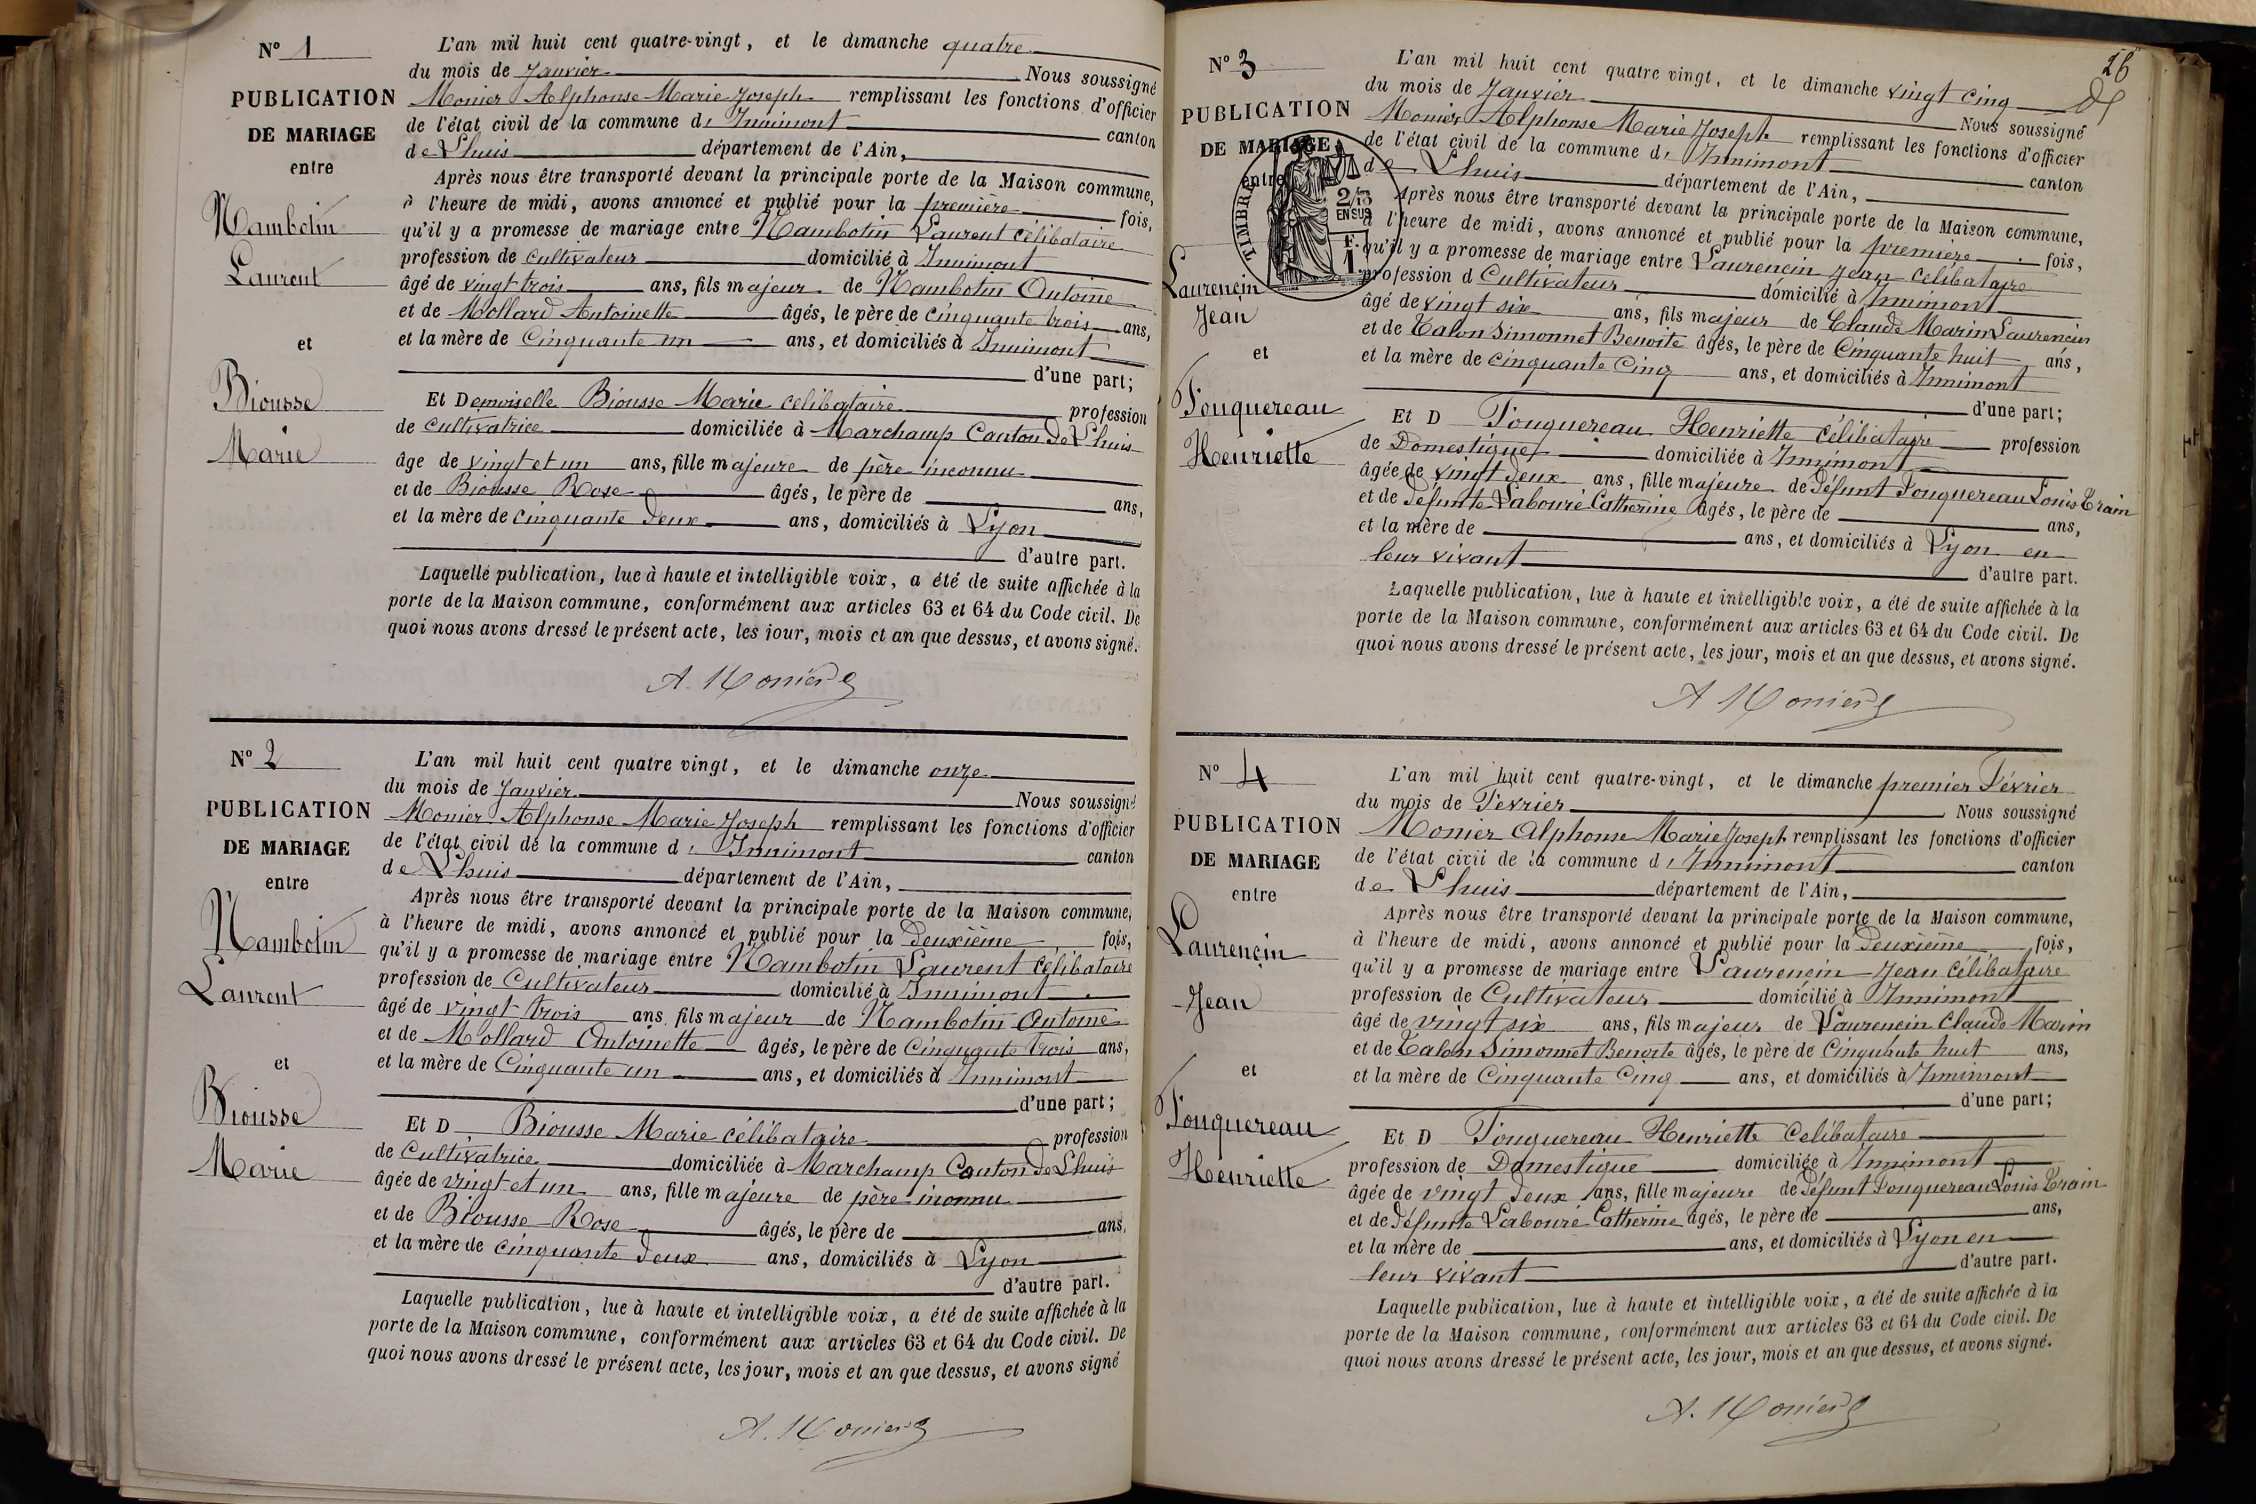 N° 1
PUBLICATION
DE MARIAGE
entre
Nambotin
Laurent
et
Biousse
Marie
L'an mil huit cent quatre-vingt, et le dimanche quatre
du mois de Janvier Nous soussigné
Monier Alphonse Marie Joseph remplissant les fonctions d'officier
de l'état civil de la commune d' Innimont canton
de Lhuis département de l'Ain,
Après nous être transporté devant la principale porte de la Maison commune,
à l'heure de midi, avons annoncé et publié pour la première fois,
qu'il y a promesse de mariage entre Nambotin Laurent célibataire
profession de cultivateur domicilié à Innimont
âgé de vingt trois ans, fils majeur de Nambotin Antoine
et de Mollard Antoinette âgés, le père de cinquante trois ans,
et la mère de Cinquante un ans, et domiciliés à Innimont
d'une part;
Et Demoiselle Biousse Marie célibataire profession
de cultivatrice domiciliée à Marchamp Canton de Lhuis
âge de vingt et un ans, fille majeure de père inconnu
et de Biousse Rose âgés, le père de ans,
et la mère de cinquante deux ans, domiciliés à Lyon
d'autre part.
Laquelle publication, lue à haute et intelligible voix, a été de suite affichée à la
porte de la Maison commune, conformément aux articles 63 et 64 du Code civil. De
quoi nous avons dressé le présent acte, les jour, mois et an que dessus, et avons signé.
A. Monier
N° 2
PUBLICATION
DE MARIAGE
entre
Nambotin
Laurent
et
Biousse
Marie
L'an mil huit cent quatre vingt, et le dimanche onze
du mois de Janvier Nous soussigné
Monier Alphonse Marie Joseph remplissant les fonctions d'officier
de l'état civil de la commune d' Innimont canton
de Lhuis département de l'Ain,
Après nous être transporté devant la principale porte de la Maison commune,
à l'heure de midi, avons annoncé et publié pour la Deuxième fois,
qu'il y a promesse de mariage entre Nambotin Laurent célibataire
profession de Cultivateur domicilié à Innimont
âgé de vingt trois ans fils majeur de Nambotin Antoine
et de Mollard Antoinette âgés, le père de Cinquante trois ans,
et la mère de Cinquante un ans, et domiciliés à Innimont
d'une part;
Et D Biousse Marie célibataire profession
de Cultivatrice domiciliée à Marchamp Canton de Lhuis
âgée de vingt et un ans, fille majeure de père inconnu
et de Biousse Rose âgés, le père de ans,
et la mère de cinquante deux ans, domiciliés à Lyon
d'autre part.
Laquelle publication, lue à haute et intelligible voix, a été de suite affichée à la
porte de la Maison commune, conformément aux articles 63 et 64 du Code civil. De
quoi nous avons dressé le présent acte, les jour, mois et an que dessus, et avons signé
A. Monier
26
N° 3
PUBLICATION
DE MARIAGE
entre
TIMBRE
2/10
EN SUS
F.
1.
Laurencin
Jean
et
Fouquereau
Henriette
L'an mil huit cent quatre vingt, et le dimanche vingt cinq
du mois de Janvier Nous soussigné
Monier Alphonse Marie Joseph remplissant les fonctions d'officier
de l'état civil de la commune d' Innimont canton
de Lhuis département de l'Ain,
Après nous être transporté devant la principale porte de la Maison commune,
à l'heure de midi, avons annoncé et publié pour la première fois,
qu'il y a promesse de mariage entre Laurencin Jean célibataire
profession d Cultivateur domicilié à Innimont
âgé de vingt six ans, fils majeur de Claude Marin Laurencin
et de Talon Simonnet Benoite âgés, le père de Cinquante huit ans,
et la mère de cinquante Cinq ans, et domiciliés à Innimont
d'une part;
Et D Fouquereau Henriette célibataire profession
de Domestique domiciliée à Innimont
âgée de vingt deux ans, fille majeure de défunt Fouquereau Louis Train
et de défunte Labouré Catherine âgés, le père de ans,
et la mère de ans, et domiciliés à Lyon en
leur vivant
d'autre part.
Laquelle publication, lue à haute et intelligible voix, a été de suite affichée à la
porte de la Maison commune, conformément aux articles 63 et 64 du Code civil. De
quoi nous avons dressé le présent acte, les jour, mois et an que dessus, et avons signé.
A Monier
N° 4
PUBLICATION
DE MARIAGE
entre
Laurencin
Jean
et
Fouquereau
Henriette
L'an mil huit cent quatre-vingt, et le dimanche premier Février
du mois de Février Nous soussigné
Monier Alphonse Marie Joseph remplissant les fonctions d'officier
de l'état civil de la commune d' Innimont canton
de Lhuis département de l'Ain,
Après nous être transporté devant la principale porte de la Maison commune,
à l'heure de midi, avons annoncé et publié pour la Deuxième fois,
qu'il y a promesse de mariage entre Laurencin Jean célibataire
profession de Cultivateur domicilié à Innimont
âgé de vingt six ans, fils majeur de Laurencin Claude Marin
et de Talon Simonnet Benoite âgés, le père de Cinquante huit ans,
et la mère de Cinquante Cinq ans, et domiciliés à Innimont
d'une part;
Et D Fouquereau Henriette Celibataire
profession de Domestique domiciliée à Innimont
âgée de vingt deux ans, fille majeure de défunt Fouquereau Louis Train
et de défunte Labouré Catherine âgés, le père de ans,
et la mère de ans, et domiciliés à Lyon en
leur vivant d'autre part.
Laquelle publication, lue à haute et intelligible voix, a été de suite affichée à la
porte de la Maison commune, conformément aux articles 63 et 64 du Code civil. De
quoi nous avons dressé le présent acte, les jour, mois et an que dessus, et avons signé.
A. Monier